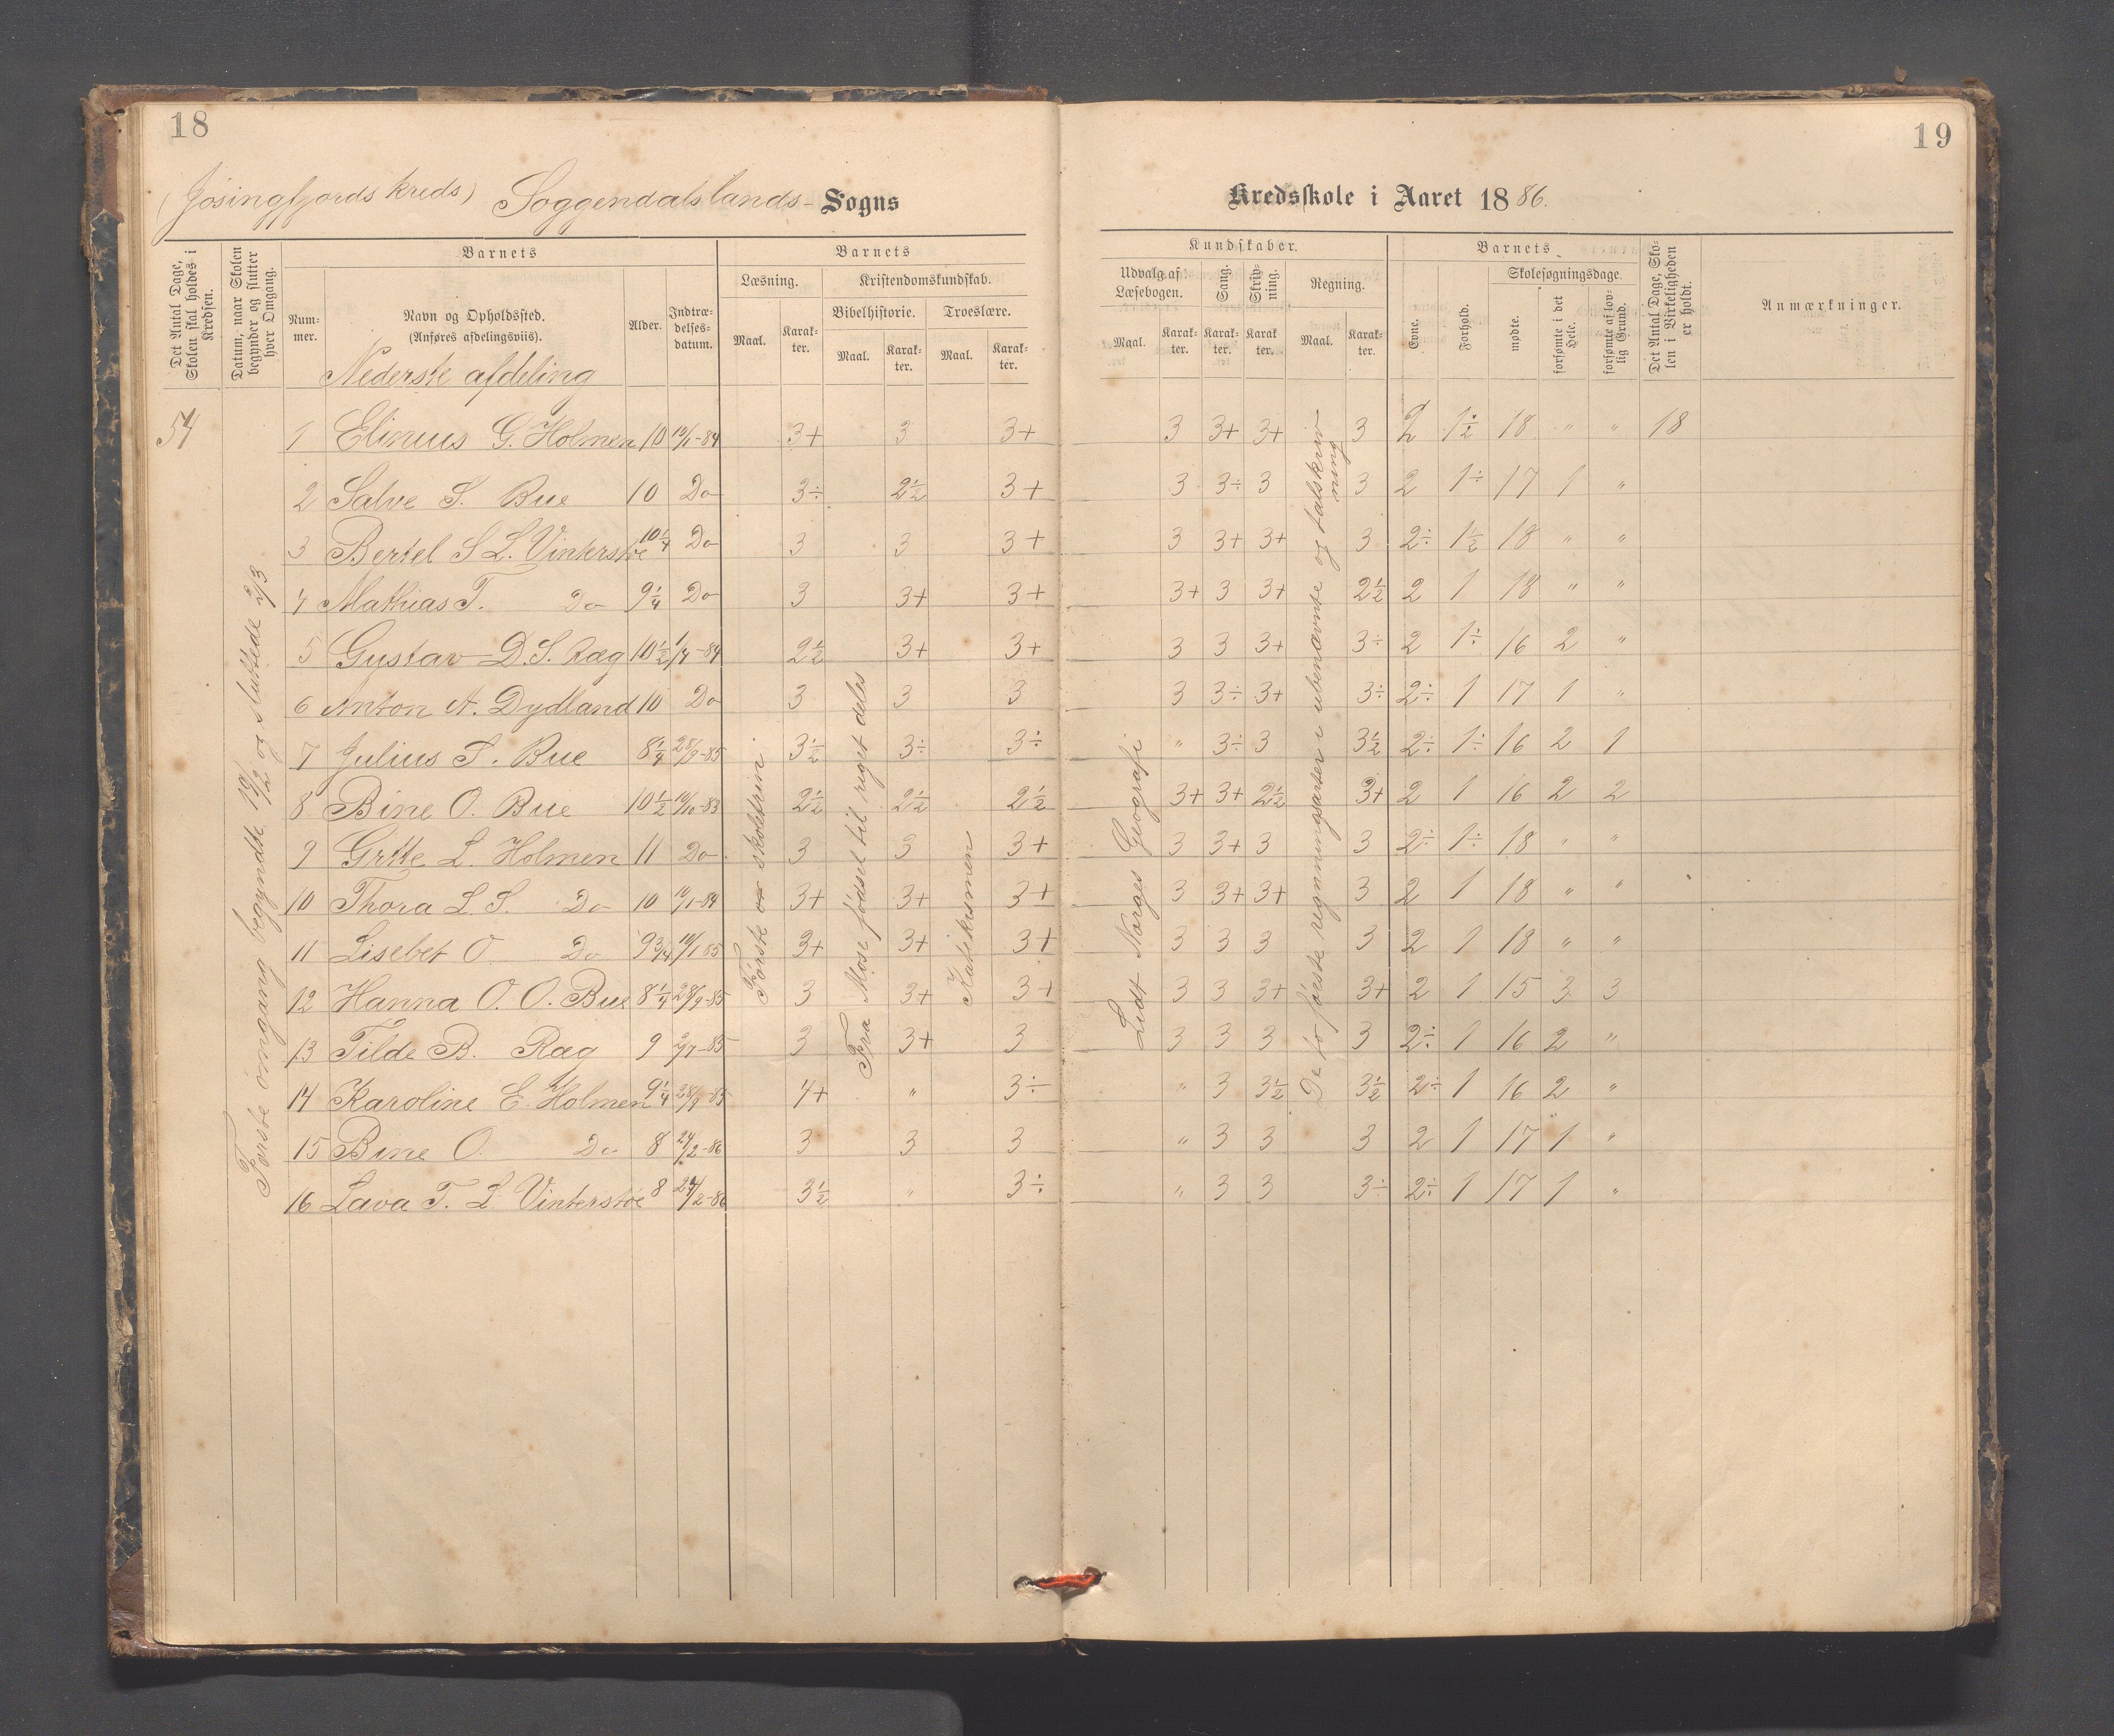 18
19
(Jøsingfjords kreds) Soggendalslands- Sogns
Kredsskole i Aaret 1886.
Det Antal Dage, Skolen skal holdes i Kredsen.
Datum, naar Skolen begynder og slutter hver Omgang.
Barnets
Nummer.
Navn og Opholdssted.
(Anføres afdelingsviis).
Nederste afdeling
Alder.
Indtrædelsesdatum.
Barnets
Læsning.
Maal.
Karakter.
Kristendomskundskab.
Bibelhistorie.
Maal.
Karakter.
Troeslære.
Maal.
Karakter.
Kundskaber.
Udvalg af Læsebogen.
Maal.
Karakter.
Sang.
Karakter.
Skrivning.
Karakter.
Regning.
Maal.
Karakter.
Barnets
Evne.
Forhold.
Skolesøgningsdage.
mødte.
forsømte i det Hele.
forsømte af lovlig Grund.
Det Antal Dage, Skolen i Virkeligheden er holdt.
Anmærkninger.
54
Første omgang begyndte 10/2 og sluttede 2/3
Første skoletrin
Fra Mose fødsel til riget deles
Katekismen
Lidt Norges Geografi
De to første regningsarter i ubenævnte og talskrivning
1 Elinus G. Holmen 10 10/1-84 3+ 3 3+ 3 3+ 3+ 3 2 1½ 18 " " 18
2 Salve S. Bue 10 Do 3÷ 2½ 3+ 3 3÷ 3 3 2 1÷ 17 1 "
3 Bertel S L. Vinterstøe 10¼ Do 3 3 3+ 3 3+ 3+ 3 2÷ 1½ 18 " "
4 Mathias T. Do 9¼ Do 3 3+ 3+ 3+ 3 3+ 2½ 2 1 18 " "
5 Gustav D. S. Ræg 10½ 1/4-84 2½ 3+ 3+ 3 3 3+ 3÷ 2 1÷ 16 2 "
6 Anton A. Dydland 10 Do 3 3 3 3 3÷ 3+ 3÷ 2÷ 1 17 1 "
7 Julius S. Bue 8¼ 28/9-85 3½ 3÷ 3÷ " 3÷ 3 3½ 2÷ 1÷ 16 2 1
8 Bine O. Bue 10½ 10/10-83 2½ 2½ 2½ 3+ 3+ 2½ 3+ 2 1 16 2 2
9 Gitte L. Holmen 11 Do 3 3 3+ 3 3+ 3 3 2÷ 1÷ 18 " "
10 Thora L. S. Do 10 10/1-84 3+ 3+ 3+ 3 3+ 3+ 3 2 1 18 " "
11 Lisebet O. Do 9¾ 10/1 85 3+ 3+ 3+ 3 3 3 3 2 1 18 " "
12 Hanna O. O. Bue 8¼ 28/9-85 3 3+ 3+ 3 3 3+ 3+ 2 1 15 3 3
13 Tilde B. Ræg 9 2/7-85 3 3+ 3 3 3 3 3 2÷ 1 16 2 "
14 Karoline E. Holmen 9¼ 28/9-85 4+ " 3÷ " 3 3½ 3½ 2÷ 1 16 2 "
15 Bine O. Do 8 24/2-86 3 3 3 " 3 3 3 2 1 17 1 "
16 Lava T. L. Vinterstøe 8 24/2-86 3½ " 3÷ " 3 3 3÷ 2÷ 1 17 1 "